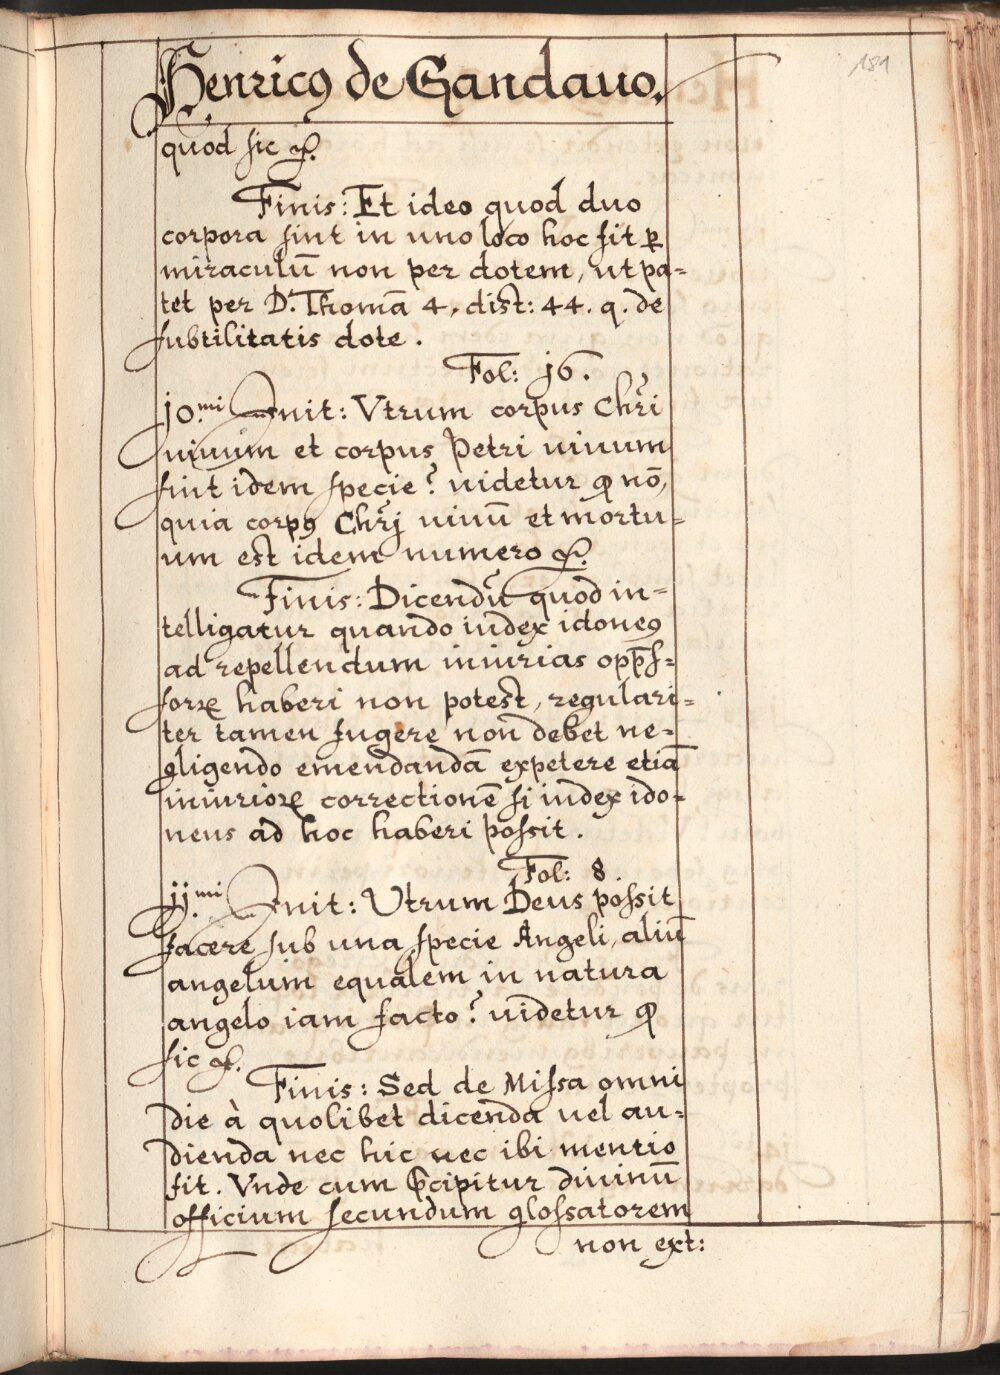 181
Henricꝯ de Gandauo.
quod sic &.
Finis: Et ideo quod duo
corpora sint in uno loco hoc sit ꝑ
miraculū non per dotem, ut pa=
tet per D. Thomā 4. dist: 44. q. de
subtilitatis dote.
Fol: j6.
j0.mi Init: Vtrum corpus Chr̄i
uiuum et corpus Petri uiuum
sint idem specie? uidetur ꝙ nō,
quia corpꝯ Chr̄j uiuū et mortu=
um est idem numero &.
Finis: Dicendū quod in=
telligatur quando iudex idoneꝯ
ad repellendum iniurias opp̄s=
soꝝ haberi non potest, regulari=
ter tamen fugere non debet ne=
gligendo emendandā expetere etiā
iniurioꝝ correctionē si iudex ido=
neus ad hoc haberi possit.
Fol: 8.
jj.mi Init: Utrum Deus possit
facere sub una specie Angeli, aliū
angelum equalem in natura
angelo iam facto? uidetur ꝙ
sic &.
Finis: Sed de Missa omni
die à quolibet dicenda uel au=
dienda nec hic nec ibi mentio
fit. Vnde cum p̄cipitur diuinū
officium secundum glossatorem
non ext: